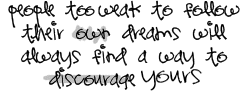 people too weak to follow
their own dreams will
always find a way to
discourage yours